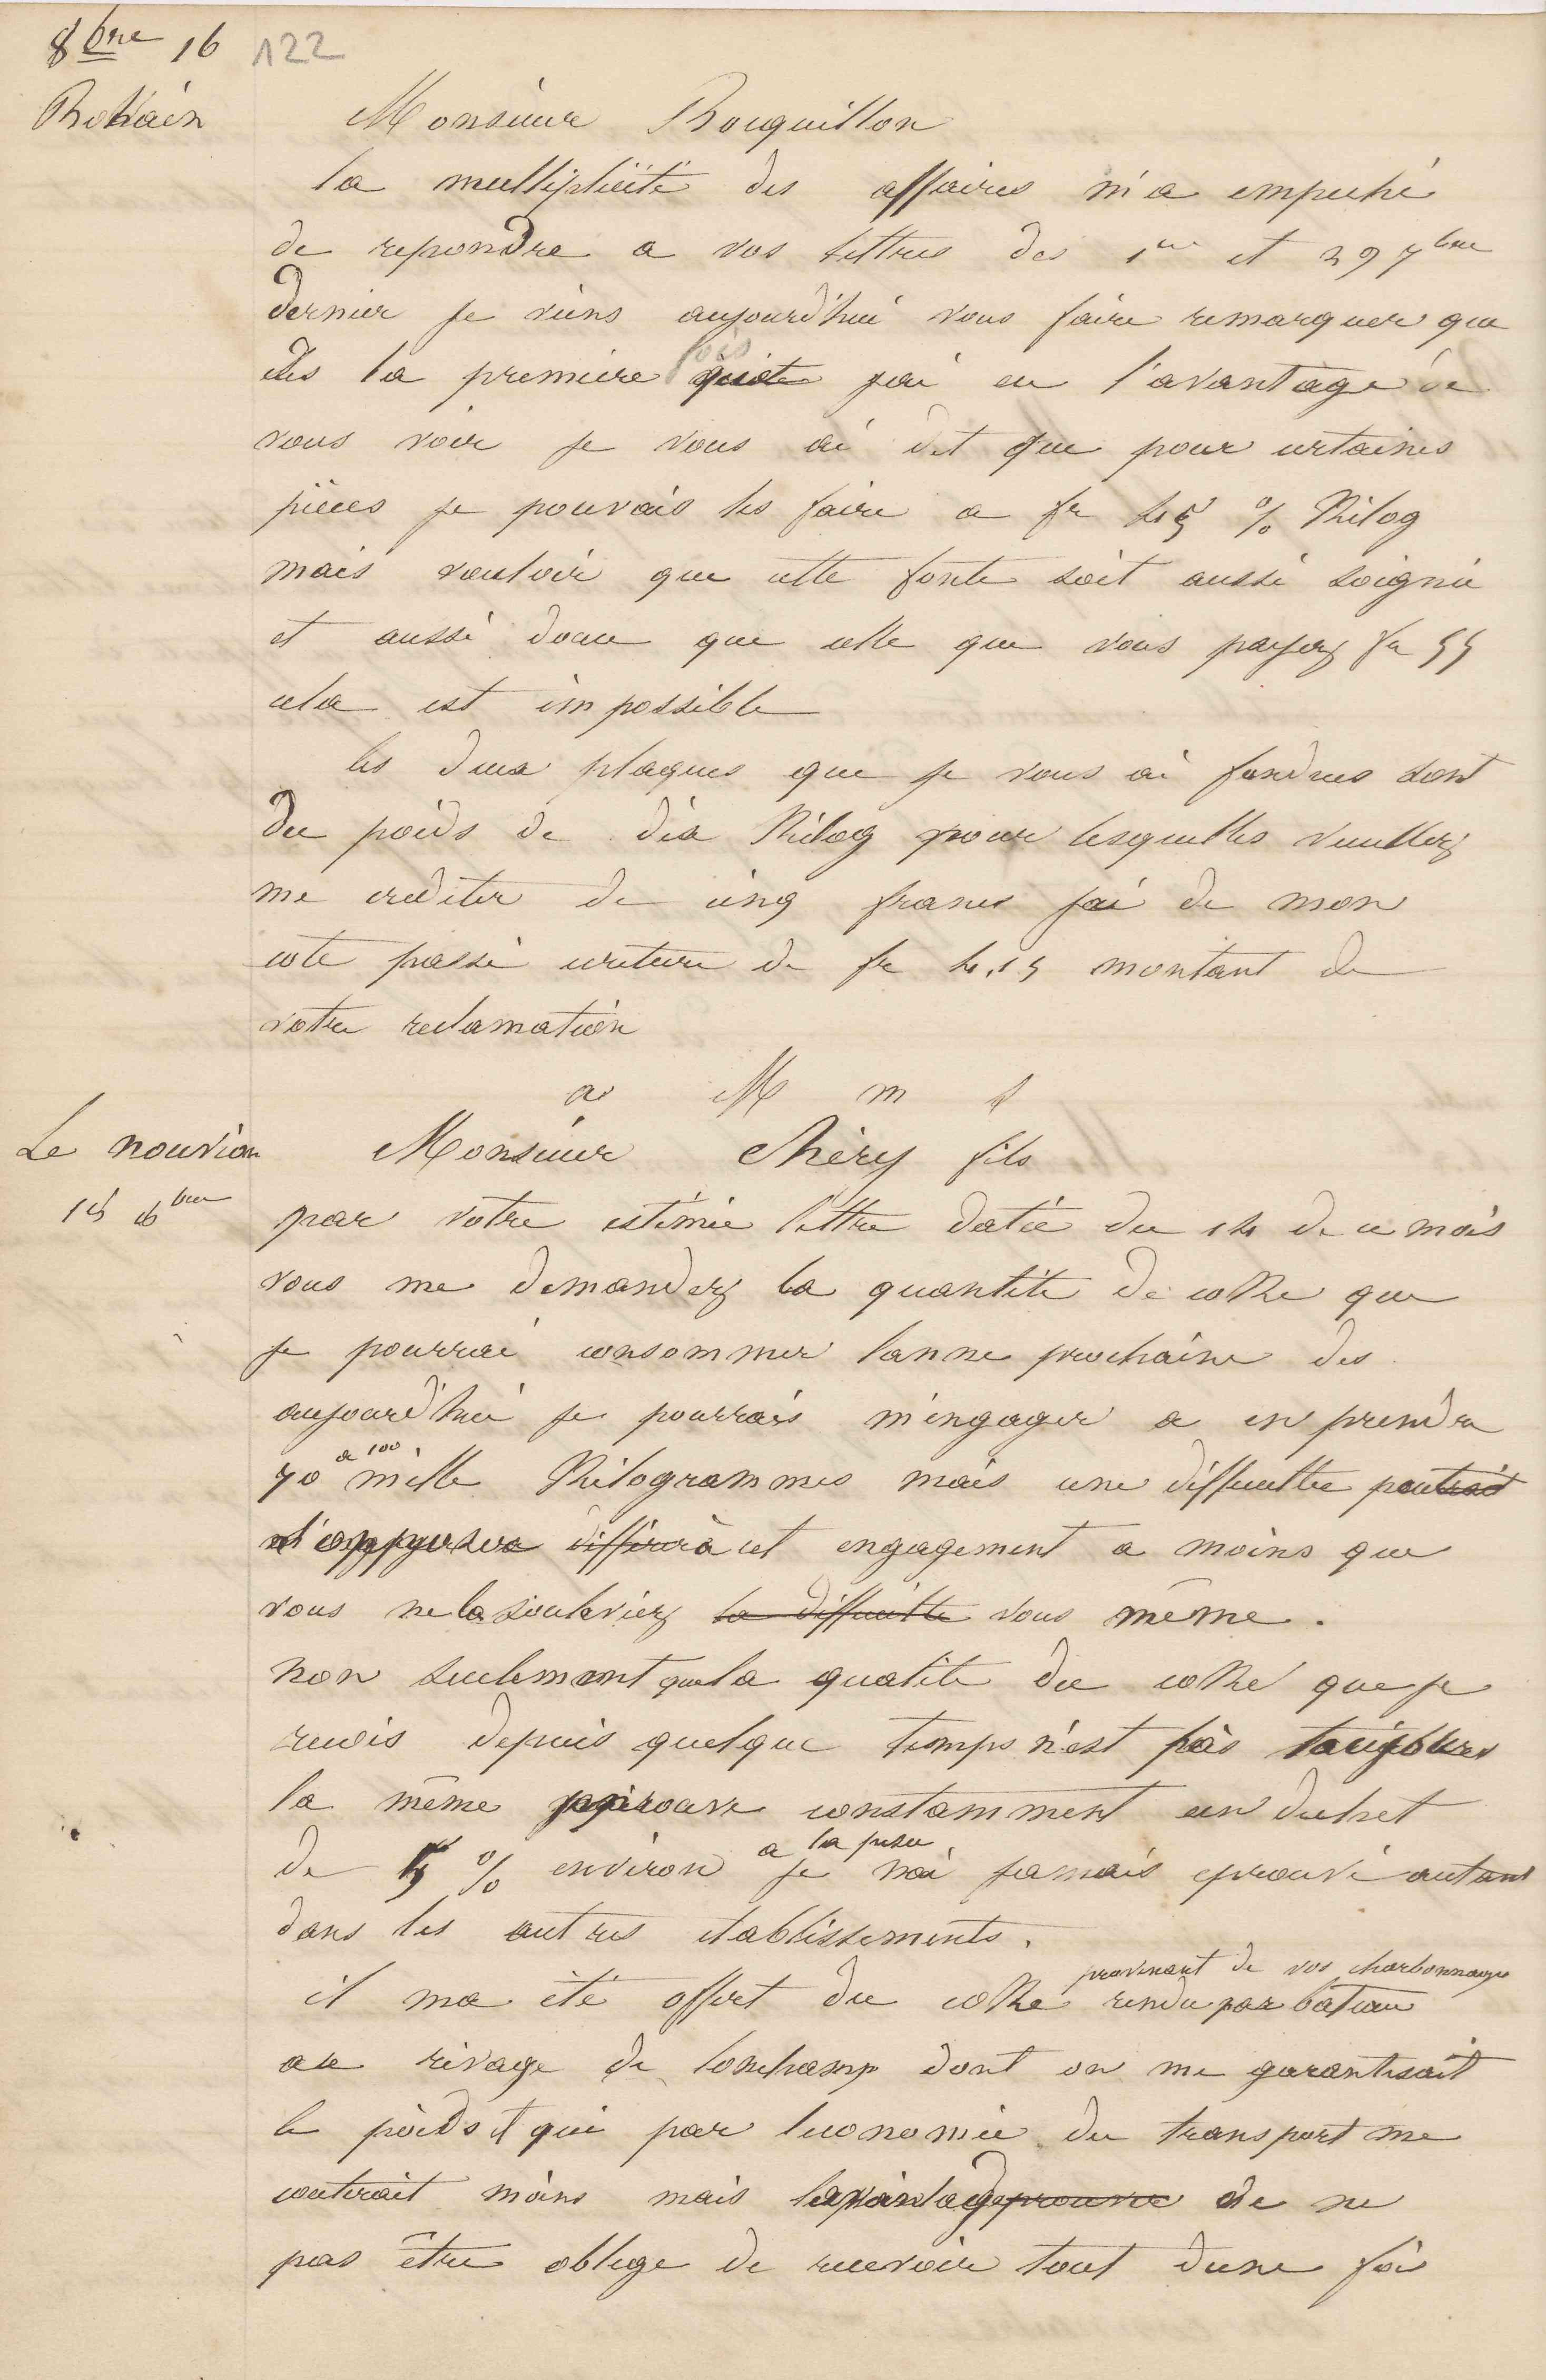 8bre 16 122
Bohain
Monsieur Bouquillon
la multiplicité des affaires m'a empeché
de repondre a vos lettres des 1er et 29 7bre
dernier je viens aujourd'hui vous faire remarquer que
dès la premiere fois que j'ai eu l'avantage de
vous voir je vous ai dit que pour certaines
pièces je pouvais les faire a fr 45 % Kilog
mais vouloir que cette fonte soit aussi soignée
et aussi douce que celle que vous payez fr 55
cela est impossible
les deux plaques que je vous ai fondues sont
du poids de dix Kilog pour lesquelles veuillez
me crediter de cinq francs j'ai de mon
coté passé ecriture de fr 4,15 montant de
votre reclamation
a M m s
Le nouvion Monsieur Chéry fils
15 8bre par votre estimée lettre datée du 14 de ce mois
vous me demandez la quantité de coke que
je pourrai consommer lanne prochaine des
aujourd'hui je pourrais m'engager a en prendre
a 100
70 mille Kilogrammes mais une difficultée peutrait
s'opposer differer à cet engagement a moins que
vous ne la souleviez la difficulté vous même.
non seulement que la qualité du coke que je
recois depuis quelque temps n'est pas toujours
la même j'eprouve constamment un dechet
a la pesée
de 5 % environ je n'ai jamais eprouvé autant
dans les autres etablissements.
provenant de vos charbonnages
il ma été offert du coke rendu par bateau
au rivage de lonchamp dont on me garantisait
le poids et qui par leconomie du transport me
couterait moins mais lavantage prouve de ne
pas être oblige de recevoir tout dune fois